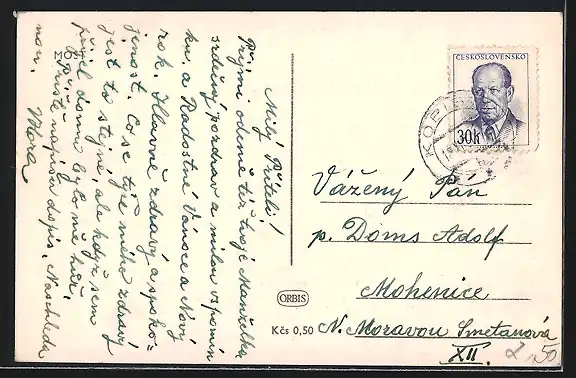 Milý Příteli!
Přijmi odemě též tvoje Manželka
srdečný pozdrav a milou vzpomín
ku, a Radostné Vánoce a Nový
rok. Hlavně zdraví a spoko=
jenost. Co se týče mího zdraví
jest to stejné, ale když sem
přijel domu bylo mě hůř.
Příště napíšu dopis. Naschleda
nou.
ČESKOSLOVENSKO
30h
KOPI
Vážený Pán
p. Doms Adolf
Mohenice
N. Moravou Smetanová
XII.
ORBIS
Kčs 0,50
2,50